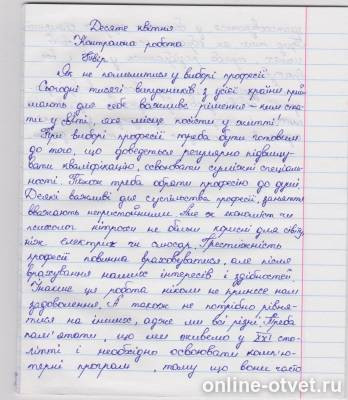 Десяте квітня
Контрольна робота
Твір
Як не помилитися у виборі професії
Сьогодні тисячі випускників з усієї країни прий
мають для себе важливе рішення – ким ста
ти у світі, яке місце посісти у житті.
При виборі професії треба бути готовим
до того, що доведеться регулярно підвищу
вати кваліфікацію, освоювати суміжні спеціаль
ності. Також треба обрати професію до душі.
Деякі важливі для суспільства професії, заняття
вважають непристойними. Але ж економіст чи
психолог нітрохи не більш корисні для світу,
ніж електрик чи слюсар. Престижність
професії повинна враховуватися, але після
врахування наших інтересів і здібностей.
Інакше ця робота ніколи не принесе нам
задоволення. А також не потрібно рівня-
тися на інших, адже ми всі різні. Треба
пам'ятати, що ми живемо у XXI сто-
літті і необхідно освоювати комп'ю-
терні програми, тому що вони часто
online-otvet.ru